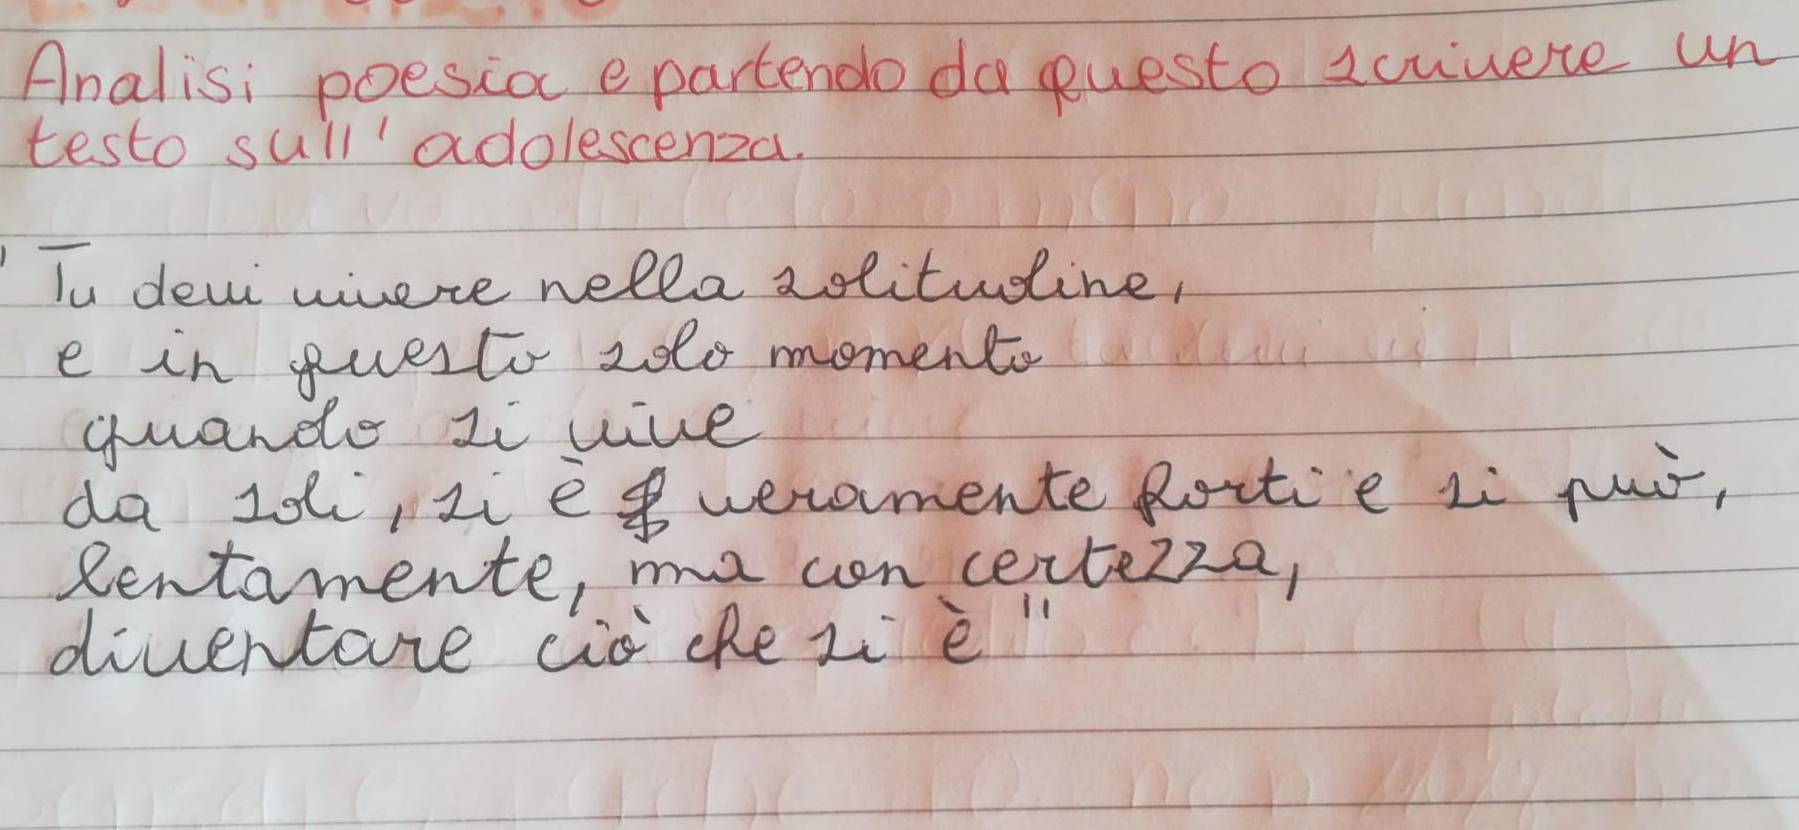 Analisi poesia e partendo da questo scrivere un
testo sull'adolescenza.
"Tu devi vivere nella solitudine,
e in questo solo momento
quando si vive
da soli, si è veramente forti e si può,
lentamente, ma con certezza,
diventare ciò che si è"